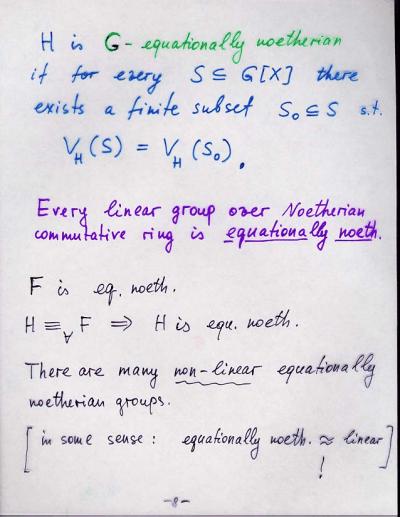 H is G - equationally noetherian
if for every S ⊆ G[X] there
exists a finite subset S₀ ⊆ S s.t.
V_H(S) = V_H(S₀).
Every linear group over Noetherian
commutative ring is equationally noeth.
F is eq. noeth.
H ≡_∀ F ⇒ H is equ. noeth.
There are many non-linear equationally
noetherian groups.
[in some sense: equationally noeth. ≈ linear]
!
-8-